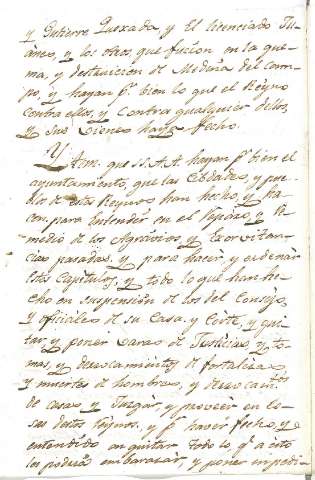 y Gutierre Quexada y El licenciado Ju=
aneo, y los otros, que fueron en la que=
ma, y destruicion de Medina del cam=
po, y hayan p.r bien lo que el Reyno
contra ellos, y contra qualquier dellos,
y sus vienes haya fecho.
Ytem. que SS. AA. hayan p.r bien el
ayuntamiento, que las Cibdades, y pue=
blos de estos Reynos han hecho, y ha=
cen, para Entender en el reparo, y Re=
medio de los Agravios y Exorvitan=
cias pasadas. y para hacer, y ordenar
estos Capitulos, y todo lo que han he=
cho en suspensión de los del Consejo,
y oficiales de su Casa, y Corte, y qui=
tar, y poner varas de Justicias, y to=
mas, y derrocamientos de fortalezas
y muertes de hombres, y derrocam.tos
de casas y Juzgar, y proveer en Co=
sas destos Reynos, y p.r haver fecho, y
entendido en quitar todo lo q.e a esto
les podria embarazar, y poner impedi=